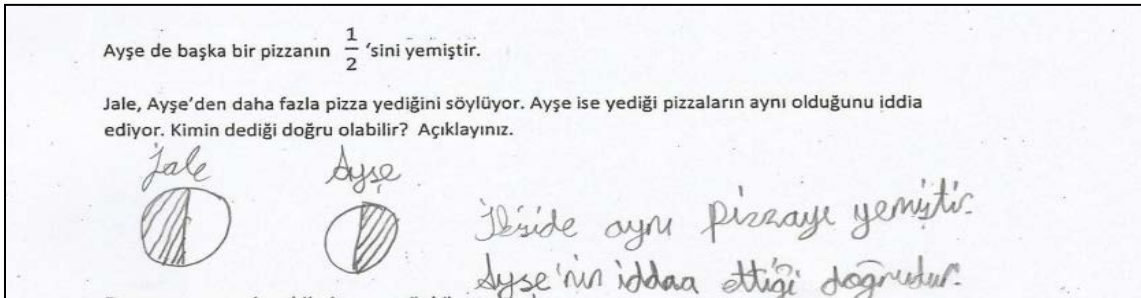 Ayşe de başka bir pizzanın 1/2 'sini yemiştir.
Jale, Ayşe'den daha fazla pizza yediğini söylüyor. Ayşe ise yediği pizzaların aynı olduğunu iddia
ediyor. Kimin dediği doğru olabilir? Açıklayınız.
Jale Ayşe
İkiside aynı pizzayı yemiştir.
Ayşe'nin iddaa ettiği doğrudur.